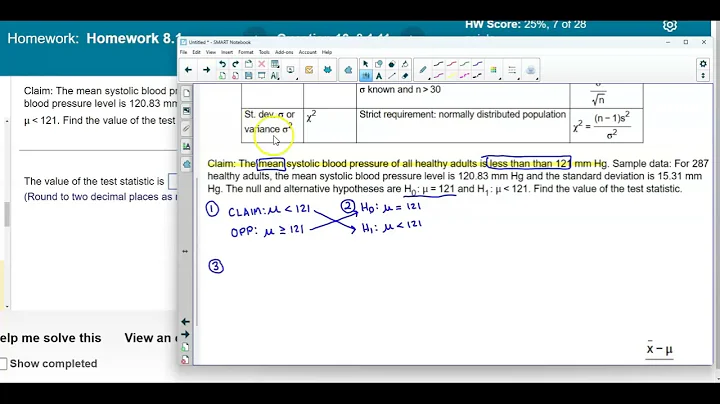 HW Score: 25%, 7 of 28
Homework: Homework 8.1
Untitled * - SMART Notebook
File Edit View Insert Format Tools Add-ons Account Help
Claim: The mean systolic blood p
blood pressure level is 120.83 mm
μ < 121. Find the value of the test
The value of the test statistic is
(Round to two decimal places as
elp me solve this View an
Show completed
σ known and n > 30
σ
√n
St. dev. σ or
variance σ²
χ²
Strict requirement: normally distributed population
χ² = (n − 1)s²
σ²
Claim: The mean systolic blood pressure of all healthy adults is less than than 121 mm Hg. Sample data: For 287
healthy adults, the mean systolic blood pressure level is 120.83 mm Hg and the standard deviation is 15.31 mm
Hg. The null and alternative hypotheses are H₀: μ = 121 and H₁: μ < 121. Find the value of the test statistic.
① CLAIM: μ < 121 ② H₀: μ = 121
OPP: μ ≥ 121 H₁: μ < 121
③
x̄ − μ